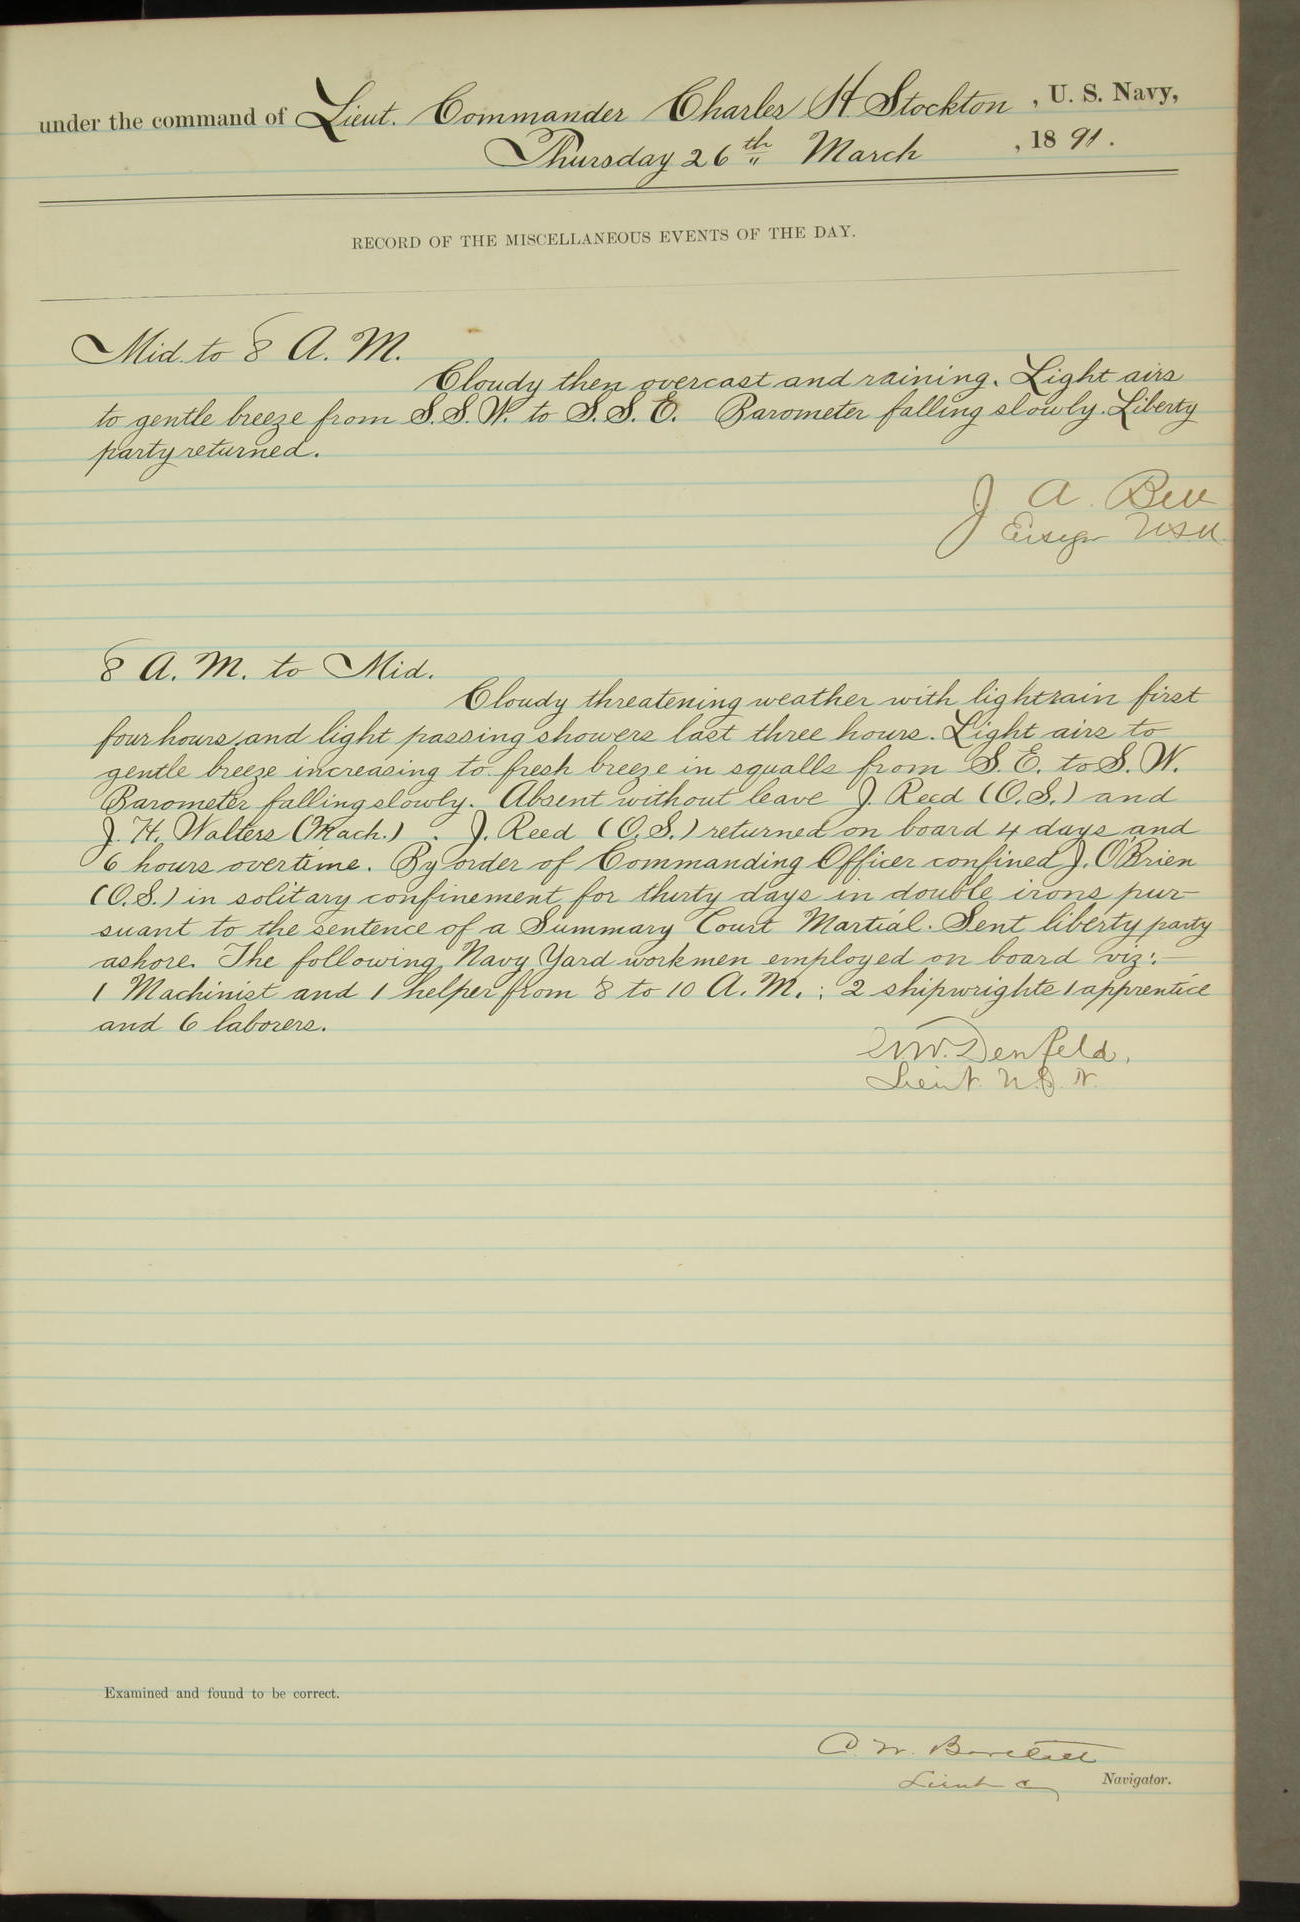 under the command of Lieut. Commander Charles H. Stockton, U. S. Navy,
Thursday 26th March, 1891.
RECORD OF THE MISCELLANEOUS EVENTS OF THE DAY.
Mid. to 8 A. M.
Cloudy then overcast and raining. Light airs
to gentle breeze from S.S.W. to S.S.E. Barometer falling slowly. Liberty
party returned.
J. A. Bell
Ensign USN
8 A. M. to Mid.
Cloudy threatening weather with light rain first
four hours, and light passing showers last three hours. Light airs to
gentle breeze increasing to fresh breeze in squalls from S. E. to S. W.
Barometer falling slowly. Absent without leave J. Reed (O.S.) and
J. H. Walters (Mach.). J. Reed (O.S.) returned on board 4 days and
6 hours overtime. By order of Commanding Officer confined J. O'Brien
(O.S.) in solitary confinement for thirty days in double irons pur-
suant to the sentence of a Summary Court Martial. Sent liberty party
ashore. The following Navy Yard workmen employed on board viz:—
1 Machinist and 1 helper from 8 to 10 A. M.; 2 shipwrights 1 apprentice
and 6 laborers.
Denfeld,
Lieut. U.S.N.
Examined and found to be correct.
C. W. Bartlett
Lieut & Navigator.